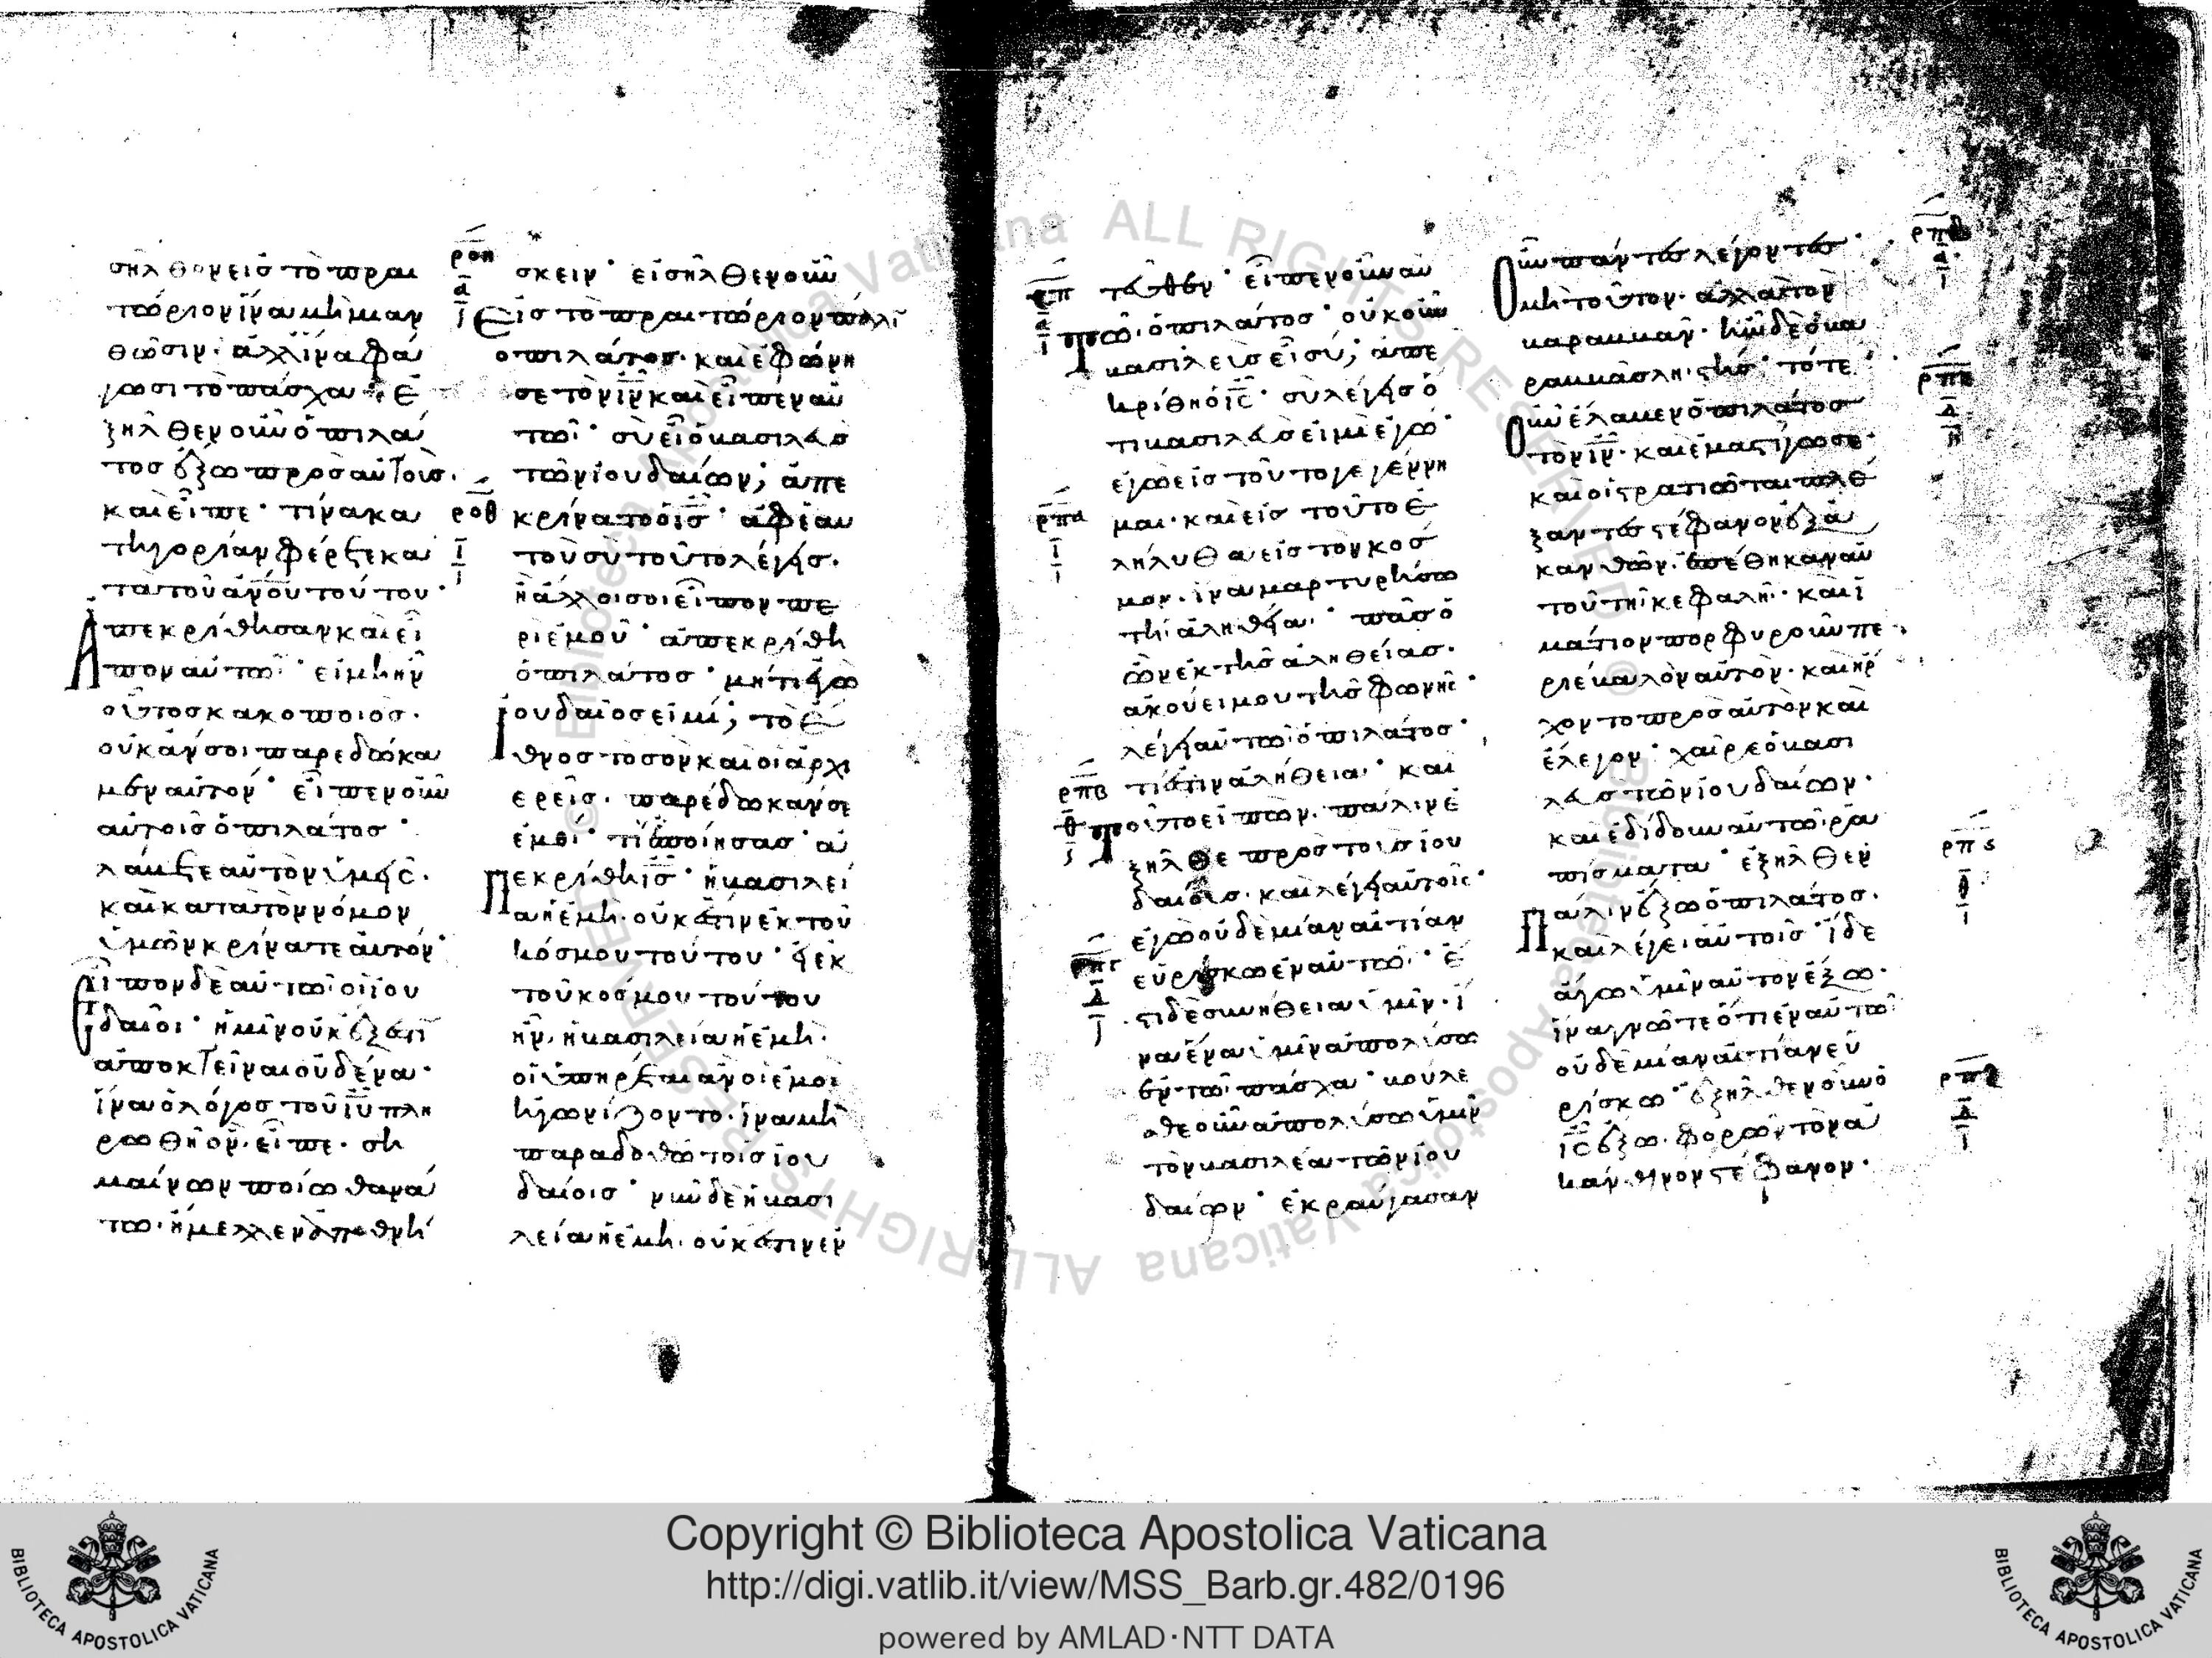 σῆλθον εἰς τὸ πραι
τώριον ἵνα μὴ μιαν
θῶσιν· ἀλλ ἵνα φά
γωσι τὸ πάσχα· ἐ
ξῆλθεν οὖν ὁ πιλά
τος ἔξω πρὸς αὐτοὺς.
καὶ εἶπε· τίνα κα
τηγορίαν φέρετε κα
τὰ τοῦ ἀνου τούτου·
Ἀπεκρίθησαν καὶ εἶ
πον αὐτῷ· εἰ μὴ ἦν
οὗτος κακοποιός.
οὐκ ἄν σοι παρεδώκα
μεν αὐτόν· εἶπεν οὖν
αὐτοῖς ὁ πιλάτος·
λάβετε αὐτὸν ὑμεῖς.
καὶ κατὰ τὸν νόμον
ὑμῶν κρίνατε αὐτόν·
Εἶπον δὲ αὐτῷ οἱ ἰου
δαῖοι· ἡμῖν οὐκ ἔξεστι
ἀποκτεῖναι οὐδένα·
ἵνα ὁ λόγος τοῦ ιυ πλη
ρωθῇ ὃν εἶπε· ση
μαίνων ποίω θανά
τω· ἤμελλεν ἀποθνή
ροη
α
ροθ
ι
σκειν· εἰσῆλθεν οὖν
Εἰς τὸ πραιτώριον πάλι
ὁ πιλάτος· καὶ ἐφώνη
σε τὸν ιν καὶ εἶπεν αὐ
τῷ· σὺ εἶ ὁ βασιλεὺς
τῶν ἰουδαίων; ἀπε
κρίνατο ὁ ις· ἀφ ἑαυ
τοῦ σὺ τοῦτο λέγεις.
ἢ ἄλλοι σοι εἶπον πε
ρὶ ἐμοῦ· ἀπεκρίθη
ὁ πιλάτος· μήτι ἐγὼ
Ἰουδαῖος εἰμί; τὸ ἔ
θνος τὸ σὸν καὶ οἱ ἀρχι
ερεῖς. παρέδωκάν σε
ἐμοί· τί ἐποίησας· ἀ
Πεκρίθη ις· ἡ βασιλεί
α ἡ ἐμὴ οὐκ ἔστιν ἐκ τοῦ
κόσμου τούτου· εἰ ἐκ
τοῦ κόσμου τούτου
ἦν ἡ βασιλεία ἡ ἐμὴ.
οἱ ὑπηρέται ἂν οἱ ἐμοὶ
ἠγωνίζοντο. ἵνα μὴ
παραδοθῶ τοῖς ἰου
δαίοις· νῦν δὲ ἡ βασι
λεία ἡ ἐμὴ. οὐκ ἔστιν ἐν
ρπ
α
ρπα
ι
ρπβ
θ
ρπγ
δ
τεῦθεν· εἶπεν οὖν αὐ
Τῷ· ὁ πιλάτος· οὐκοῦν
βασιλεὺς εἶ σύ; ἀπε
κρίθη ὁ ις· σὺ λέγεις ὅ
τι βασιλεύς εἰμι ἐγώ·
ἐγὼ εἰς τοῦτο γεγέννη
μαι· καὶ εἰς τοῦτο ἐ
λήλυθα εἰς τὸν κόσ
μον. ἵνα μαρτυρήσω
τῇ ἀληθεία· πᾶς ὁ
ὢν ἐκ τῆς ἀληθείας.
ἀκούει μου τῆς φωνῆς·
λέγει αὐτῷ ὁ πιλάτος·
τί ἐστιν ἀλήθεια· καὶ
Τοῦτο εἰπών. πάλιν ἐ
ξῆλθε πρὸς τοὺς ἰου
δαίους. καὶ λέγει αὐτοῖς·
ἐγὼ οὐδεμίαν αἰτίαν
εὑρίσκω ἐν αὐτῷ· ἔ
στι δὲ συνήθεια ὑμῖν. ἵ
να ἕνα ὑμῖν ἀπολύσω
ἐν τῷ πάσχα· βούλε
σθε οὖν ἀπολύσω ὑμῖν
τὸν βασιλέα τῶν ἰου
δαίων· ἐκραύγασαν
Οὖν πάντες λέγοντες·
μὴ τοῦτον· ἀλλὰ τὸν
βαραββᾶν· ἦν δὲ ὁ βα
ραββᾶς ληστής· τότε
Οὖν ἔλαβεν ὁ πιλάτος
τὸν ιν· καὶ ἐμαστίγωσε·
καὶ οἱ στρατιῶται πλέ
ξαντες στέφανον ἐξ ἀ
κανθῶν. ἐπέθηκαν αὐ
τοῦ τῇ κεφαλῇ· καὶ ἱ
μάτιον πορφυροῦν πε
ριέβαλον αὐτόν· καὶ ἤρ
χοντο πρὸς αὐτὸν καὶ
ἔλεγον· χαῖρε ὁ βασι
λεὺς τῶν ἰουδαίων·
καὶ ἐδίδουν αὐτῷ ῥα
πίσματα· ἐξῆλθεν
Πάλιν ἔξω ὁ πιλάτος.
καὶ λέγει αὐτοῖς· ἴδε
ἄγω ὑμῖν αὐτὸν ἔξω·
ἵνα γνῶτε ὅτι ἐν αὐτῷ
οὐδεμίαν αἰτίαν εὑ
ρίσκω· ἐξῆλθεν οὖν ὁ
ις ἔξω· φορῶν τὸν ἀ
κάνθινον στέφανον·
α
δ
ρπς
θ
δ
Copyright © Biblioteca Apostolica Vaticana
http://digi.vatlib.it/view/MSS_Barb.gr.482/0196
powered by AMLAD·NTT DATA
BIBLIOTECA APOSTOLICA VATICANA
BIBLIOTECA APOSTOLICA VATICANA
© Biblioteca Apostolica Vaticana ALL RIGHTS RESERVED
© Biblioteca Apostolica Vaticana ALL RIGHTS RESERVED